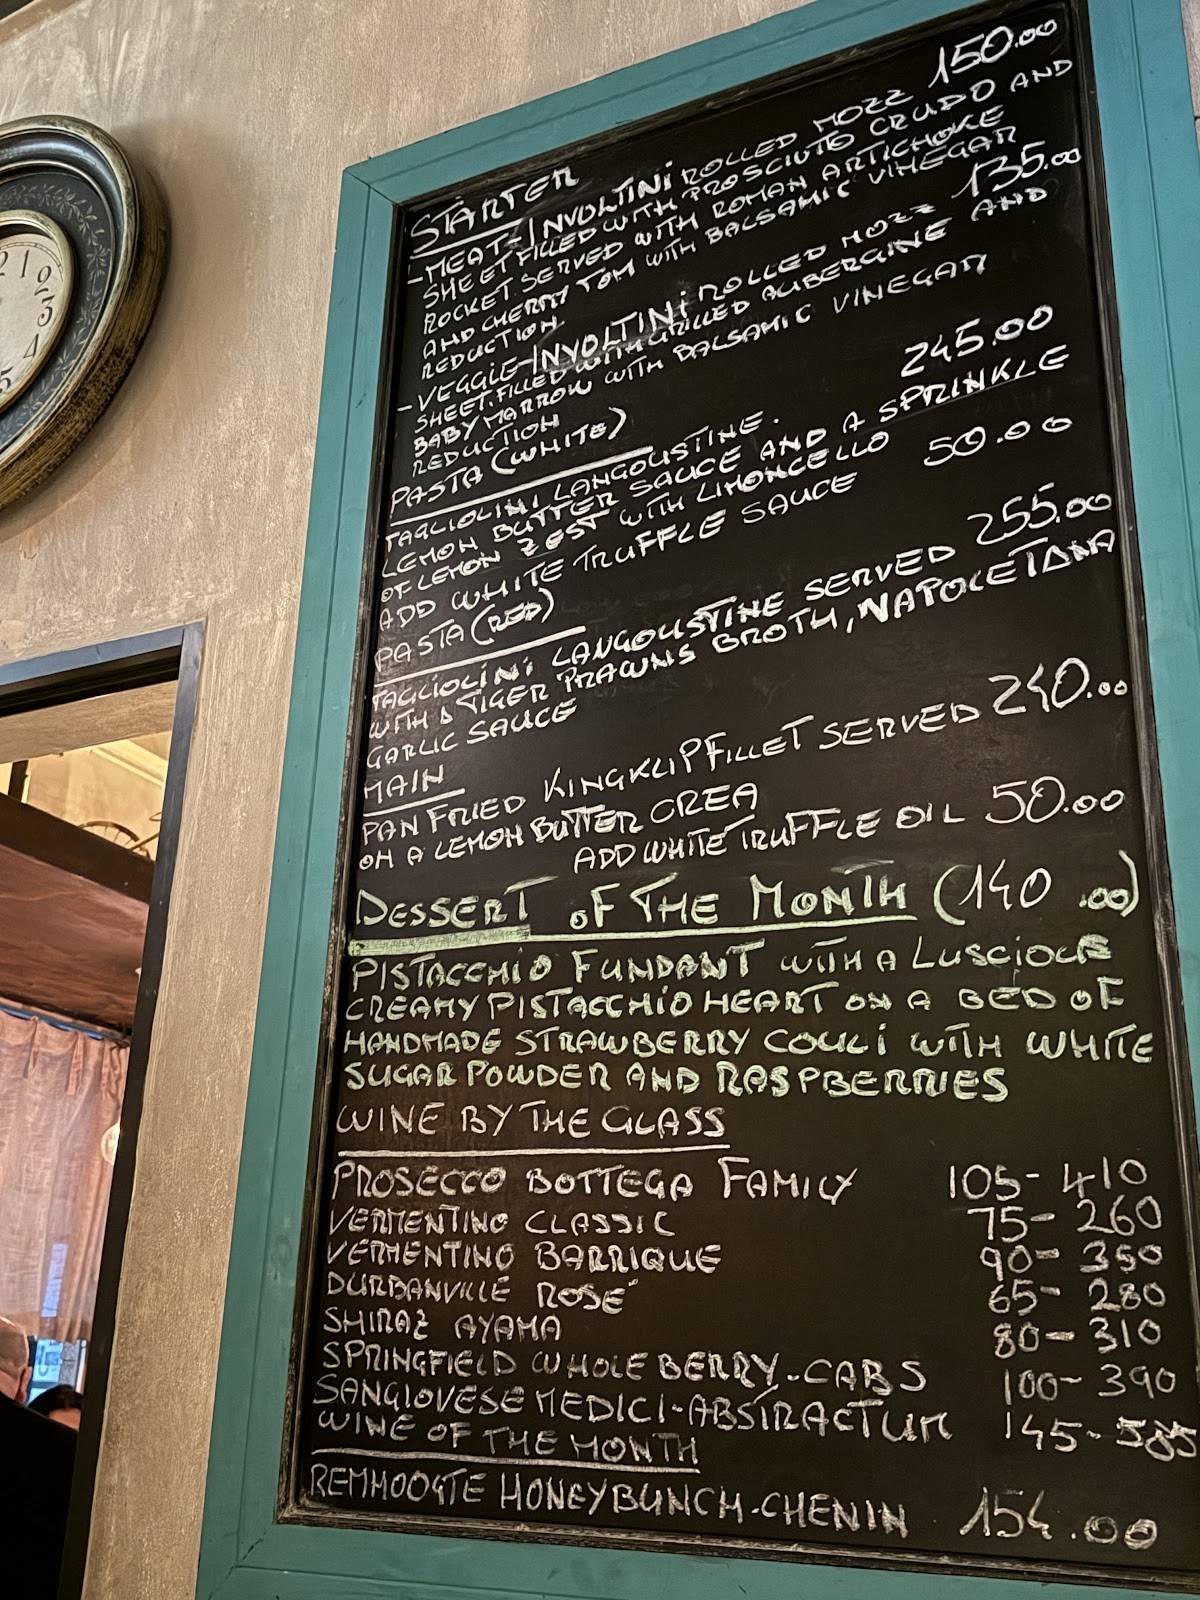 STARTER
-MEAT-INVOLTINI ROLLED MOZZ 150.00
SHEET FILLED WITH PROSCIUTTO CRUDO AND
ROCKET SERVED WITH ROMAN ARTICHOKE
AND CHERRY TOM WITH BALSAMIC VINEGAR
REDUCTION
-VEGGIE-INVOLTINI ROLLED MOZZ 135.00
SHEET.FILLED WITH GRILLED AUBERGINE AND
BABY MARROW WITH BALSAMIC VINEGAR
REDUCTION
PASTA (WHITE) 245.00
TAGLIOLINI LANGOUSTINE.
LEMON BUTTER SAUCE AND A SPRINKLE
OF LEMON ZEST WITH LIMONCELLO
ADD WHITE TRUFFLE SAUCE 50.00
PASTA (RED)
TAGLIOLINI LANGOUSTINE SERVED 255.00
WITH A TIGER PRAWNS BROTH, NAPOLETANA
GARLIC SAUCE
MAIN
PAN FRIED KINGKLIP FILLET SERVED 240.00
ON A LEMON BUTTER CREA
ADD WHITE TRUFFLE OIL 50.00
DESSERT OF THE MONTH (140.00)
PISTACCHIO FUNDANT WITH A LUSCIOUS
CREAMY PISTACCHIO HEART ON A BED OF
HANDMADE STRAWBERRY COULI WITH WHITE
SUGAR POWDER AND RASPBERRIES
WINE BY THE GLASS
PROSECCO BOTTEGA FAMILY 105-410
VERMENTINO CLASSIC 75-260
VERMENTINO BARRIQUE 90-350
DURBANVILLE ROSE' 65-280
SHIRAZ AYAMA 80-310
SPRINGFIELD WHOLE BERRY-CABS 100-390
SANGIOVESE MEDICI-ABSTRACTUM 145-585
WINE OF THE MONTH
REMHOOGTE HONEYBUNCH-CHENIN 154.00
1
2
3
4
5